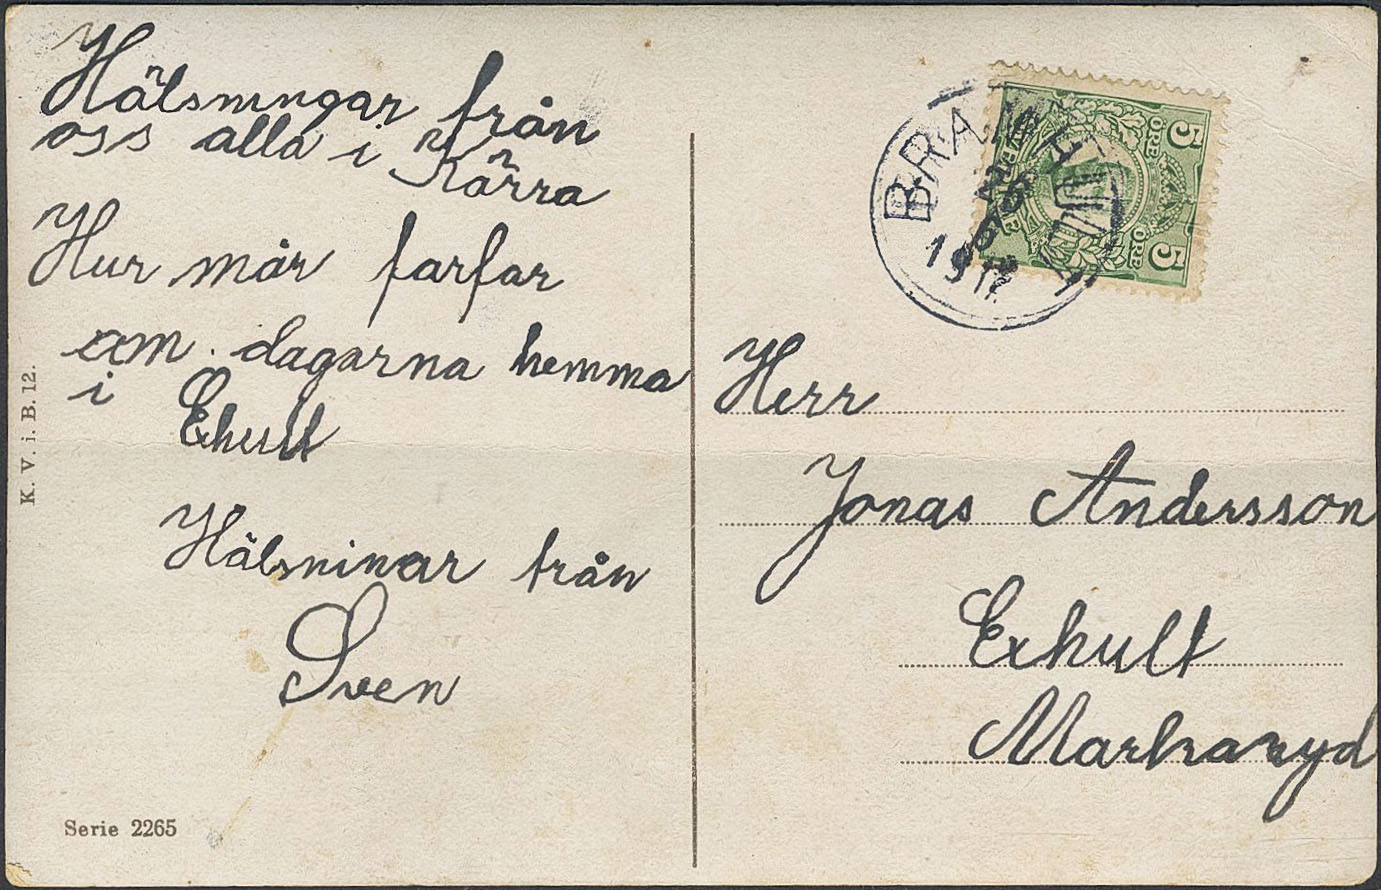 Hälsningar från
oss alla i Kärra
Hur mår farfar
om dagarna hemma
i Exhult
Hälsninar från
Sven
K. V. i. B. 12.
Serie 2265
5 ÖRE
ÖRE 5
SVERIGE
Herr
Jonas Andersson
Exhult
Markaryd